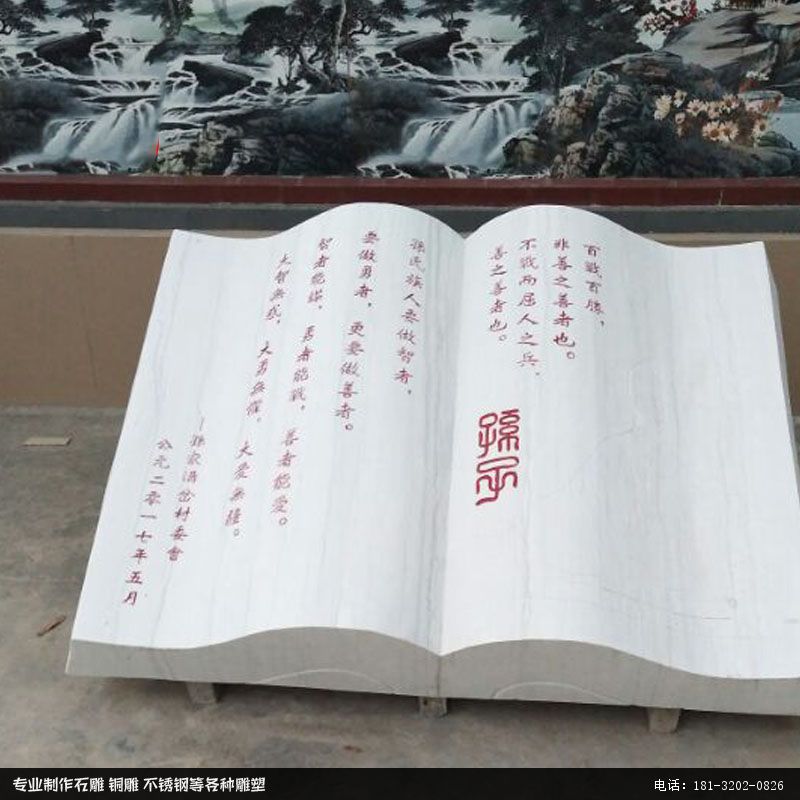 百戰百勝，
非善之善者也。
不戰而屈人之兵，
善之善者也。
孫子
孫氏族人要做智者，
要做勇者，更要做善者。
智者能謀，勇者能戰，善者能愛。
大智無惑，大勇無懼，大愛無疆。
—孫家溝岔村委會
公元二零一七年五月
专业制作石雕 铜雕 不锈钢等各种雕塑
电话：181-3202-0826